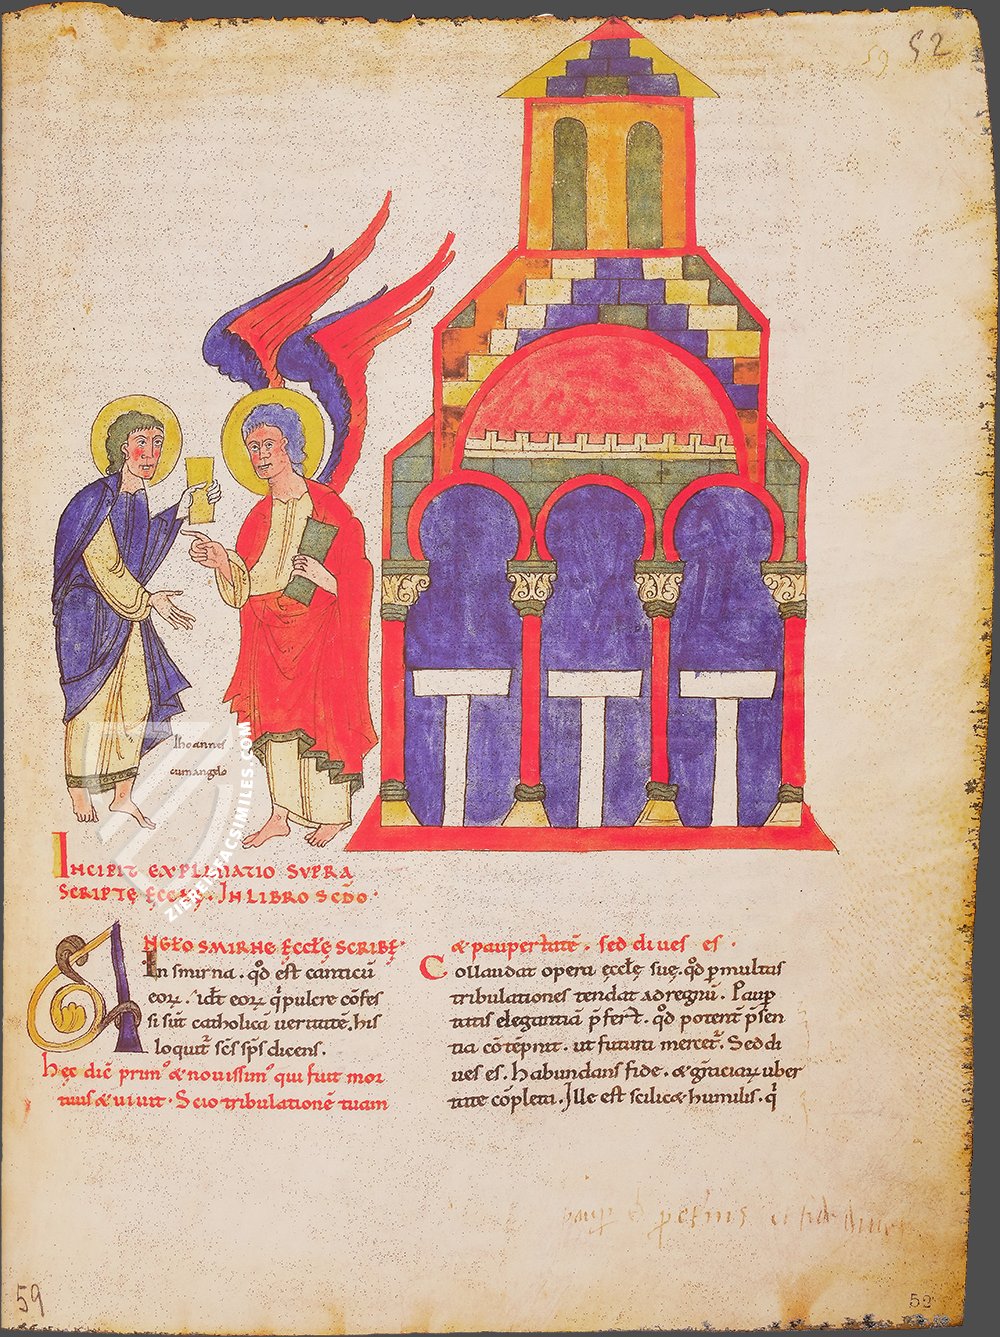 59 52
Ihoannes
cum angelo
ZIEREIS FACSIMILES.COM
INCIPIT EXPLANATIO SUPRA
SCRIPTĘ ĘCCŁĘ. IN LIBRO SCDO.
ANGEŁO SMIRNE ĘCCŁĘ SCRIBĘ.
In smirna. qđ est canticū
eoꝝ. idt eoꝝ q̇ pulcre cōfes
si sūt catholica ueritatē, his
loquit̄ scs̄ sps̄ dicens.
hęc dic̄ primꝰ & nouissimꝰ qui fuit mor
tuus & uiuit. Scio tribulationē tuam
& paupertatē. sed diues es.
Collaudat opera ęccłę suę. qđ p multas
tribulationes tendat ad regnū. Paup
tatis elegantiā p̄fert. qđ potent p̄sen
tia cōtēpnit. ut futura mercet̄. Sed di
ues es. habundans fide. & gratiaꝝ uber
tate cōpleta. Ille est scilic& humilis. q̇
59
52